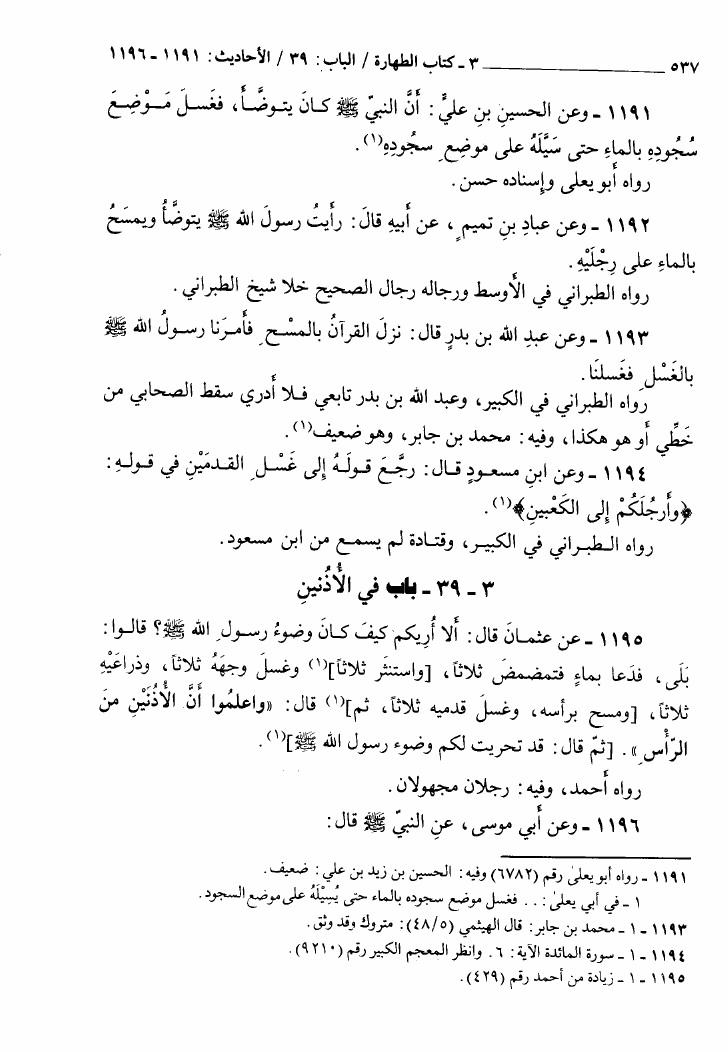 ٥٣٧ ــــــــ ٣ ـ كتاب الطهارة / الباب: ٣٩ / الأحاديث: ١١٩١ ـ ١١٩٦
١١٩١ ـ وعن الحسينِ بنِ عليٍّ: أَنَّ النبيّ ﷺ كانَ يتوضَّأُ، فغسلَ مَوْضِعَ
سُجُودِهِ بالماءِ حتى سَيَّلَهُ على موضِعِ سجُودِهِ(١).
رواه أبو يعلى وإسناده حسن.
١١٩٢ ـ وعن عبادِ بنِ تميمٍ، عن أَبيهِ قالَ: رأَيتُ رسولَ الله ﷺ يتوضَّأُ ويمسَحُ
بالماءِ على رِجْلَيْهِ.
رواه الطبراني في الأوسط ورجاله رجال الصحيح خلا شيخ الطبراني.
١١٩٣ ـ وعن عبدِ الله بن بدرٍ قال: نزلَ القرآنُ بالمسْحِ فأمرَنا رسولُ الله ﷺ
بالغَسْلِ فغَسلنَا.
رواه الطبراني في الكبير، وعبد الله بن بدر تابعي فلا أدري سقط الصحابي من
خَطِّي أو هو هكذا، وفيه: محمد بن جابر، وهو ضعيف(١).
١١٩٤ ـ وعن ابنِ مسعودٍ قال: رجَّعَ قولَهُ إلى غَسْلِ القدمَيْنِ في قولهِ:
﴿وأَرجُلَكُمْ إِلى الكَعْبينِ﴾(١).
رواه الطبراني في الكبير، وقتادة لم يسمع من ابن مسعود.
٣ ـ ٣٩ ـ باب في الأُذُنينِ
١١٩٥ ـ عن عثمانَ قال: ألا أُريكم كيفَ كانَ وضوءُ رسولِ الله ﷺ؟ قالوا:
بَلَى، فدَعا بماءٍ فتمضمضَ ثلاثاً، [واستنثَر ثلاثاً](١) وغسلَ وجهَهُ ثلاثاً، وذراعَيْهِ
ثلاثاً، [ومسح برأسه، وغسلَ قدميه ثلاثاً، ثم](١) قال: «واعلمُوا أَنَّ الأُذُنَيْنِ منَ
الرَّأْسِ». [ثمّ قال: قد تحريت لكم وضوء رسول الله ﷺ](١).
رواه أحمد، وفيه: رجلان مجهولان.
١١٩٦ ـ وعن أبي موسى، عنِ النبيّ ﷺ قال:
١١٩١ ـ رواه أبو يعلىٰ رقم (٦٧٨٢) وفيه: الحسين بن زيد بن علي: ضعيف.
١ ـ في أبي يعلىٰ: .. فغسل موضع سجوده بالماء حتى يُسِيْلَهُ على موضع السجود.
١١٩٣ ـ ١ ـ محمد بن جابر: قال الهيثمي (٤٨/٥): متروك وقد وثق.
١١٩٤ ـ ١ ـ سورة المائدة الآية: ٦. وانظر المعجم الكبير رقم (٩٢١٠).
١١٩٥ ـ ١ ـ زيادة من أحمد رقم (٤٢٩).